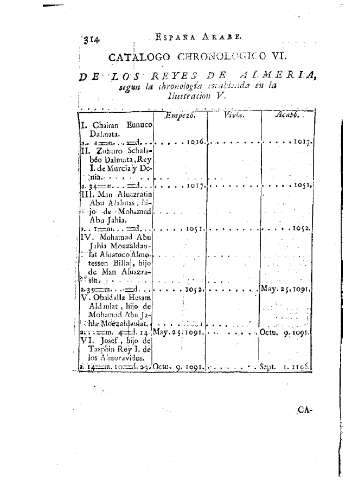 314 ESPAÑA ARABE.
CATALOGO CHRONOLOGICO VI.
DE LOS REYES DE ALMERIA,
segun la chronología establecida en la
Ilustracion V.
Empezó. Vivia. Acabó.
I. Chairan Eunuco
Dalmata.
a. 1016. 1017.
II. Zohairo
Dalmata, Rey
I. de Murcia y De-
nia.
a. 34 1017. 1051.
III. Man Aluazratin
Abu Alahuas, hi-
jo de Mohamad
Abu Jahia.
a. 1 1051. 1052.
IV. Mohamad Abu
Jahia Moezaldau-
lat Aluatoco Almo-
tessen Billal, hijo
de Man Aluazra-
tin.
a. 39 1052. May. 25. 1091.
V. Obaidalla Hesam
Aldaulat, hijo de
Mohamad Abu Ja-
hia Moezaldaulat.
a. m. 4 d. 14. May. 25. 1091. Octu. 9. 1091.
VI. Josef, hijo de
Tasphin Rey I. de
los Almoravides.
a. 14 m. 10 d. 23. Octu. 9. 1091. Sept. 1. 1106.
CA-